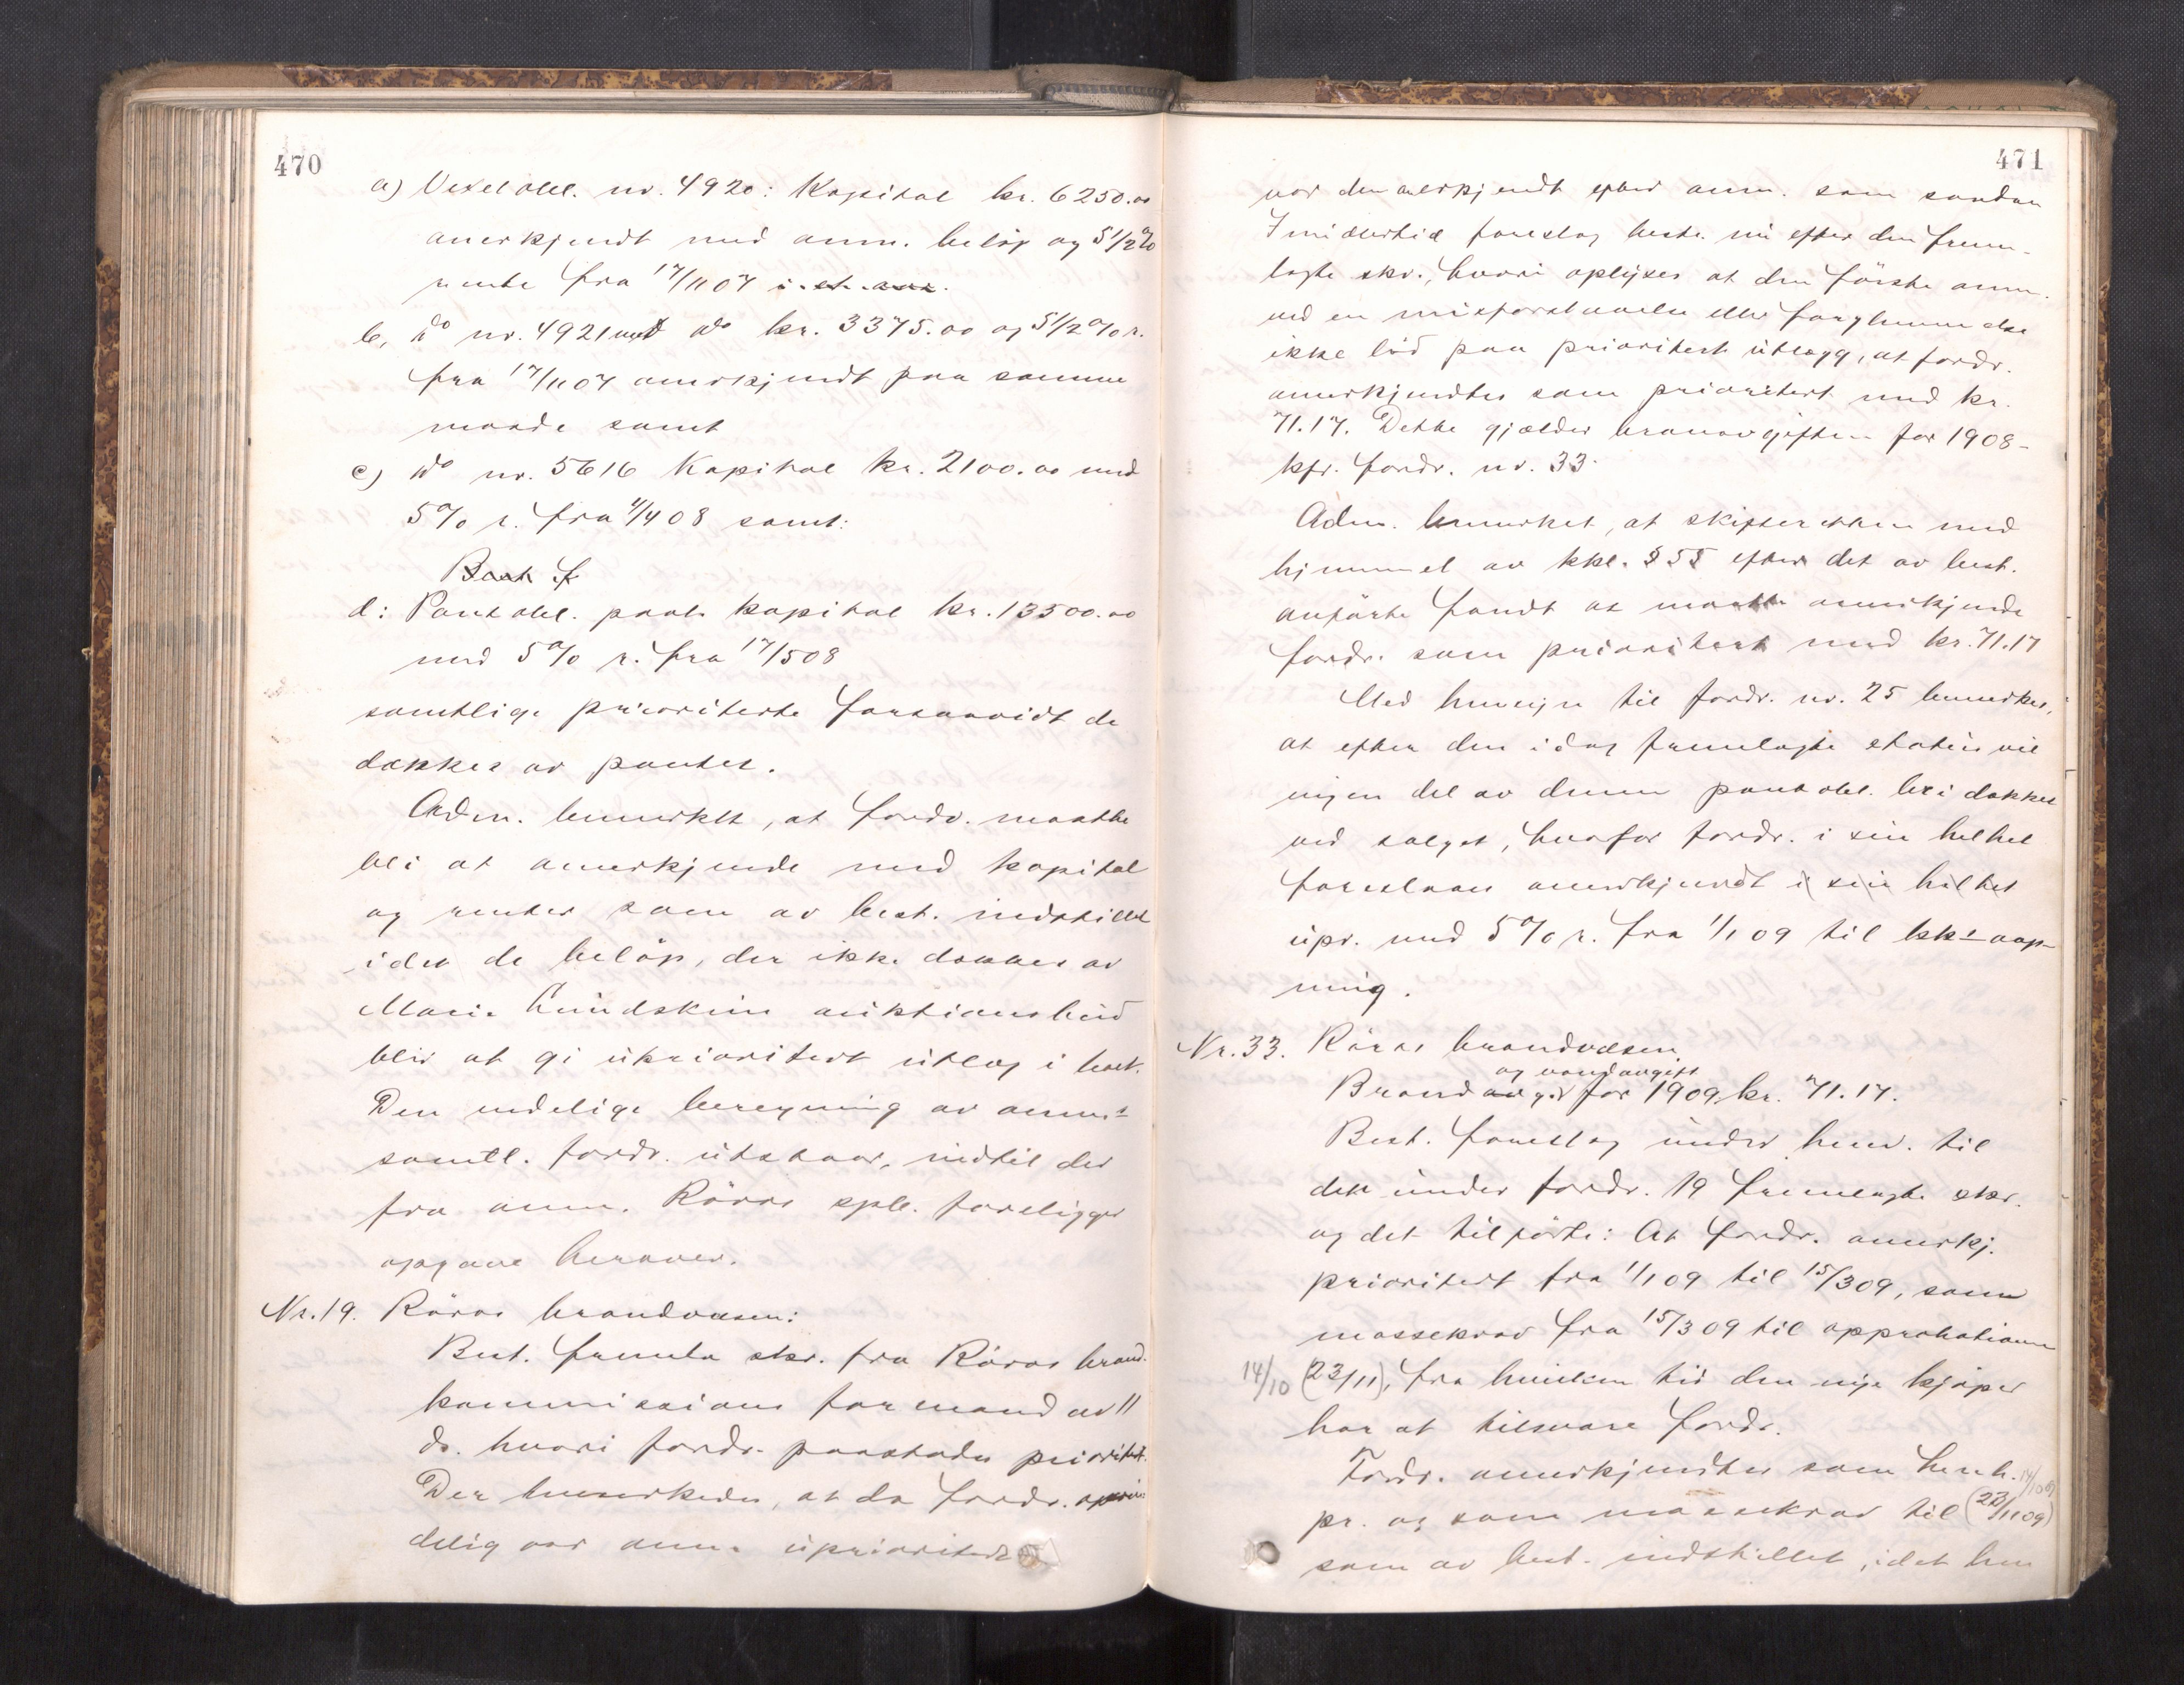 470
a) Vexelobl. nr. 4920: Kapital kr. 6250.00
anerkjendt med anm. beløp og 5 1/2 %
rente fra 17/11 07 i et aar.
b, do nr. 4921 med do kr. 3375.00 og 5 1/2 % r.
fra 17/11 07 anerkjendt paa samme
maade samt
c) do nr. 5616 Kapital kr. 2100.00 med
5 % r. fra 4/4 08 samt:
d: Pantobl. paal. kapital kr. 13500.00
med 5 % r. fra 17/5 08
samtlige prioriterte forsaavidt de
dækkes av pantet.
Adm. bemerket, at fordr. maatte
bli at anerkjende med kapital
og renter som av best. indstillet
idet de beløp, der ikke dækkes av
Marie auktionsbud
blir at gi uprioritert utlæg i boet.
Den endelige beregning av anm.s
samtl. fordr. utstaar, indtil der
fra anm. Röros spb. foreligger
opgave herover.
Nr. 19. Röros brandvæsen:
Best. fremla skr. fra Röros brand-
kommissions formand av 11
ds. hvori fordr. paastades prioritert.
Der bemerkedes, at da fordr. oprin
delig var anm. uprioritert
471
var den anerkjendt efter anm. som saadan
Imidlertid foreslog best. nu efter den frem-
lagte skr., hvori oplyses at den første anm.
ved en misforstaaelse eller forglemmelse
ikke lød paa prioritert utlægg, at fordr.
anerkjendtes som prioritert med kr.
71.17. Dette gjælder brandavgiften for 1908 -
kfr. fordr. nr. 33.
Adm. bemerket, at skifteretten med
hjemmel av kkl. § 55 efter det av best.
anførte fandt at maatte anerkjende
fordr. som prioritert med kr. 71.17
Med hensyn til fordr. nr. 25 bemerkes,
at efter den idag fremlagte status vil
ingen del av denne pantobl. bli dækket
ved salget, hvorfor fordr. i sin helhet
foreslaaes anerkjendt i sin helhet
upr. med 5 % r. fra 1/1 09 til kks aap-
ning.
Nr. 33. Röros brandvæsen
og vandavgift
Brandavg. for 1909 kr. 71.17.
Best. foreslog under henv. til
det under fordr. 19 fremlagte skr.
og det tilførte: At fordr. anerkj.
prioritert fra 1/1 09 til 15/3 09, som
massekrav fra 15/3 09 til approbationen
14/10 (23/11), fra hvilken tid den nye kjøper
har at tilsvare fordr.
Fordr. anerkjendtes som henh. 14/10 09
pr. og som massekrav til (23/11 09)
som av best. indstillet, idet hen